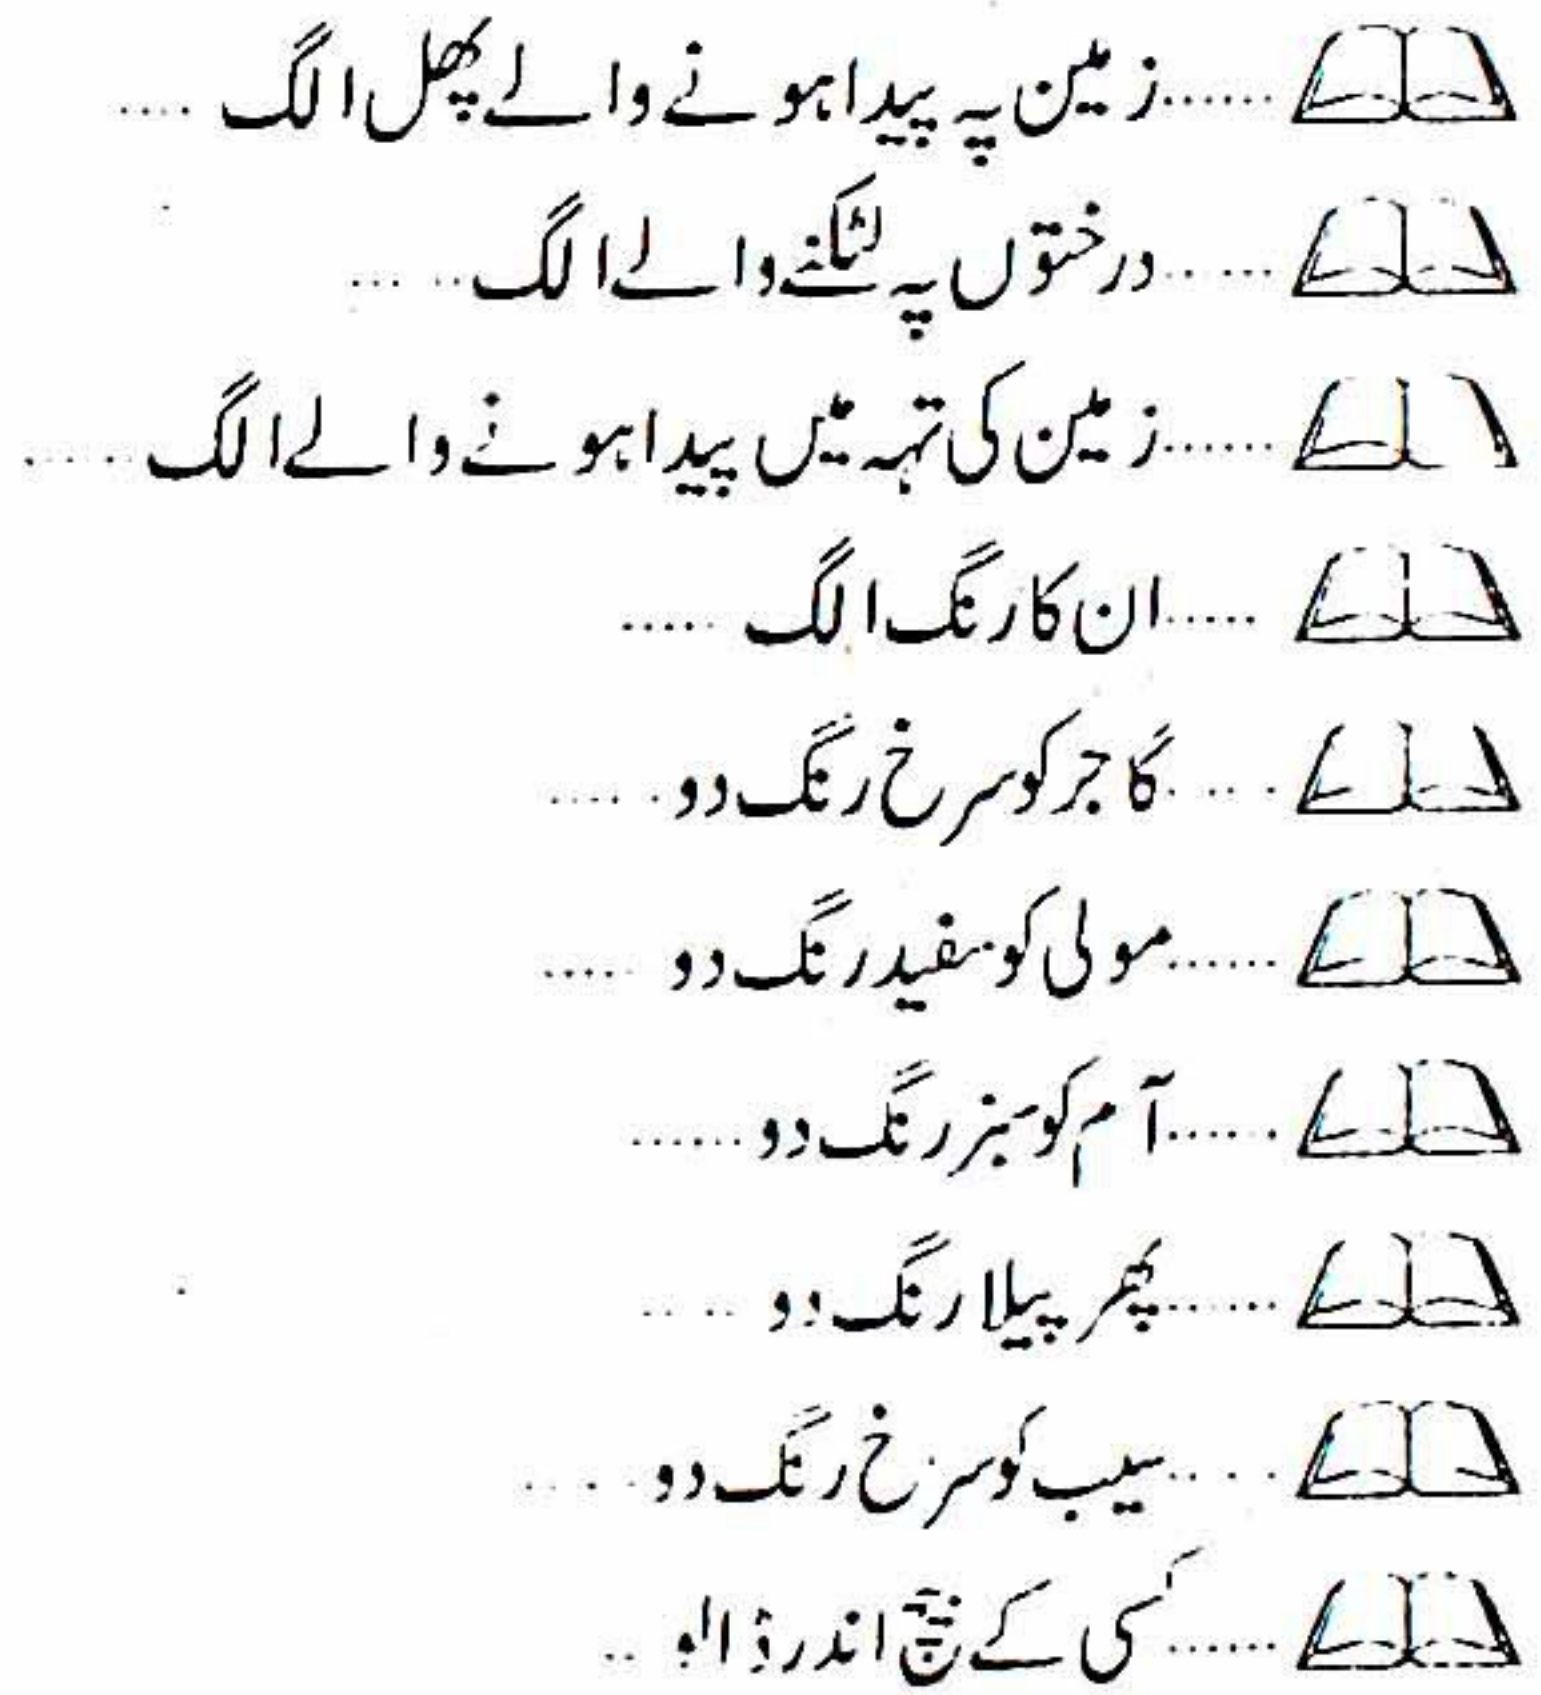 ......زمین پہ پیدا ہونے والے پھل الگ ....
......درختوں پہ لٹکنے والے الگ.....
......زمین کی تہہ میں پیدا ہونے والے الگ......
.....ان کا رنگ الگ .....
.....گاجر کو سرخ رنگ دو .....
......مولی کو سفید رنگ دو .....
......آم کو سبز رنگ دو......
......پھر پیلا رنگ دو .....
.....سیب کو سرخ رنگ دو.....
......کسی کے بیج اندر ڈالو ..